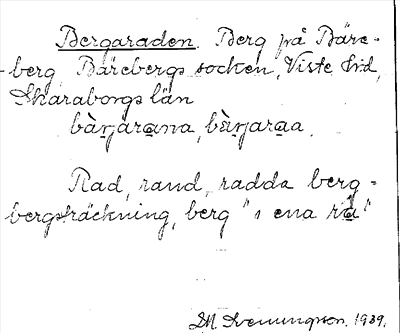 Bergaraden. Berg på Bäre-
berg, Bärebergs socken, Viste hd,
Skaraborgs län
bàrjarana, bàrjaraa.
Rad, rand, radda berg =
bergsträckning, berg "i ena ra"
M. Svenungsson, 1939.